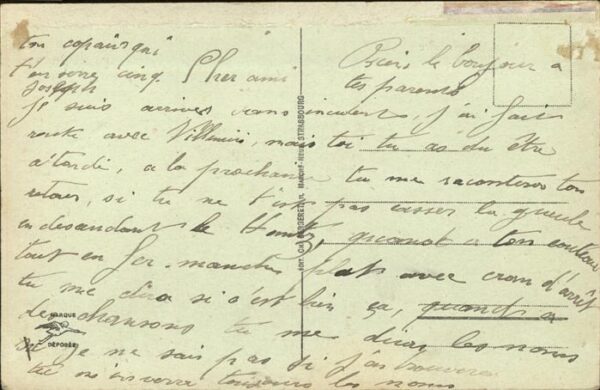 ton copain qui
t'en serre cinq. Cher ami
Joseph
Bien le bonjour a
tes parents
Je suis arrivé sans incident, j'ai fait
route avec Villemin, mais toi tu as du être
a la prochaine tu me raconteras ton
retour, si tu ne t'est pas casser la gueule
en descendant le quand a ton couteau
tout en fer. manche plat avec cran d'arrêt
tu me dira si c'est bien ça, quand a
des chansons tu me diras les noms
Je ne sais pas si j'en trouverai
tu toujours les noms
STRASBOURG
MARQUE
DÉPOSÉE